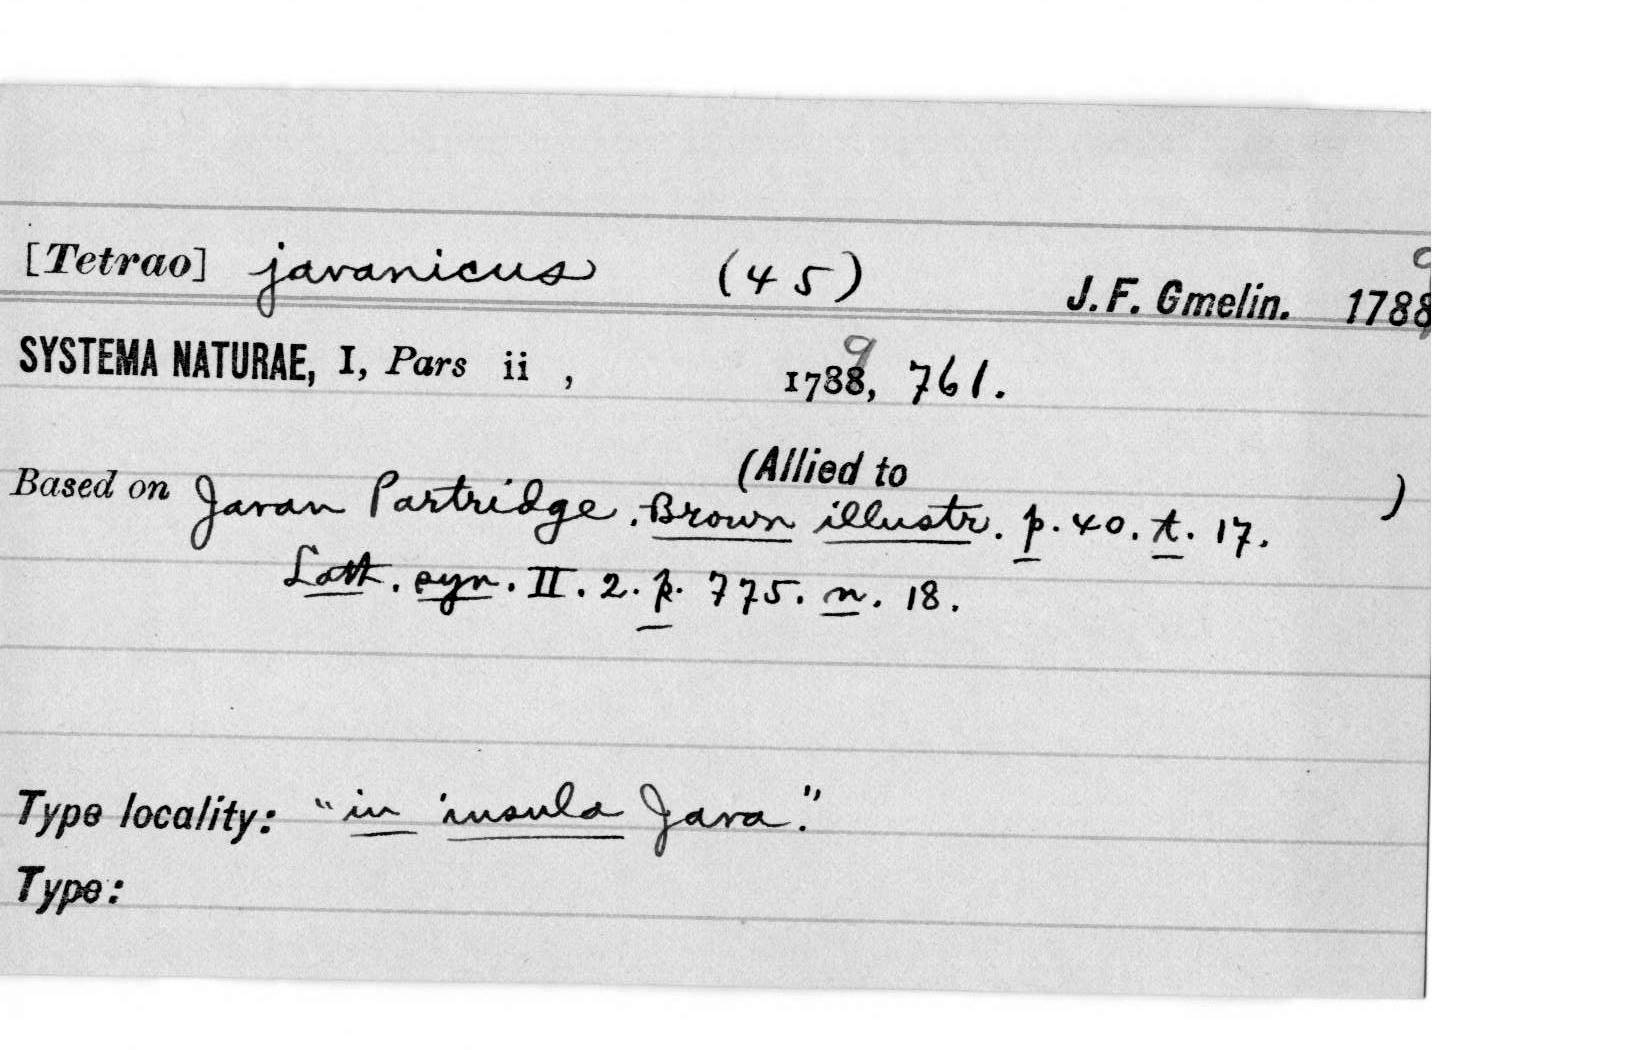 [Tetrao] javanicus (45) J. F. Gmelin. 1788 9
SYSTEMA NATURAE, I, Pars ii , 1788, 9 761.
(Allied to )
Based on Javan Partridge. Brown illustr. p. 40. t. 17.
Lath. syn. II. 2. p. 775. n. 18.
Type locality: "in insula Java."
Type: